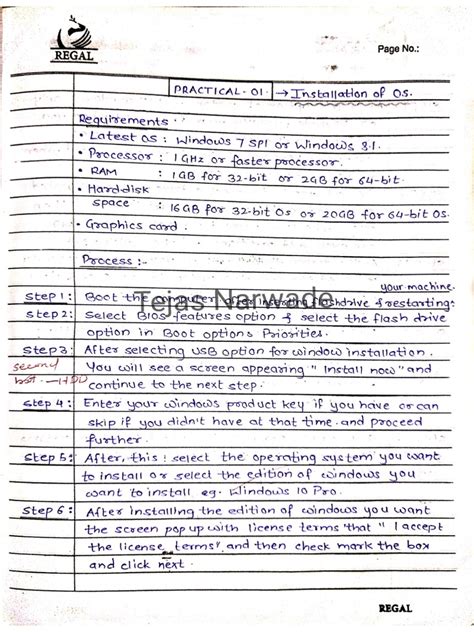 REGAL
Page No.:
PRACTICAL - 01 → Installation of OS.
Requirements -
• Latest OS : Windows 7 SP1 or Windows 8.1.
• Processor : 1 GHz or faster processor.
• RAM : 1GB for 32-bit or 2GB for 64-bit.
• Harddisk
space : 16 GB for 32-bit Os or 20GB for 64-bit OS.
• Graphics card.
Process :-
your machine.
Step 1 : Boot the computer after inserting flashdrive & restarting.
Step 2 : Select Bios features option & select the flash drive
option in Boot options Priorities.
Step 3 : After selecting USB option for window installation.
second You will see a screen appearing "Install now" and
HDD continue to the next step.
Step 4 : Enter your windows product key if you have or can
skip if you didn't have at that time. and proceed
further.
Step 5 : After, this : select the operating system you want
to install or select the edition of windows you
want to install eg. Windows 10 Pro.
Step 6 : After installing the edition of windows you want
the screen pop up with license terms that "I accept
the license terms" and then check mark the box
and click next.
Tejas Narwade
REGAL